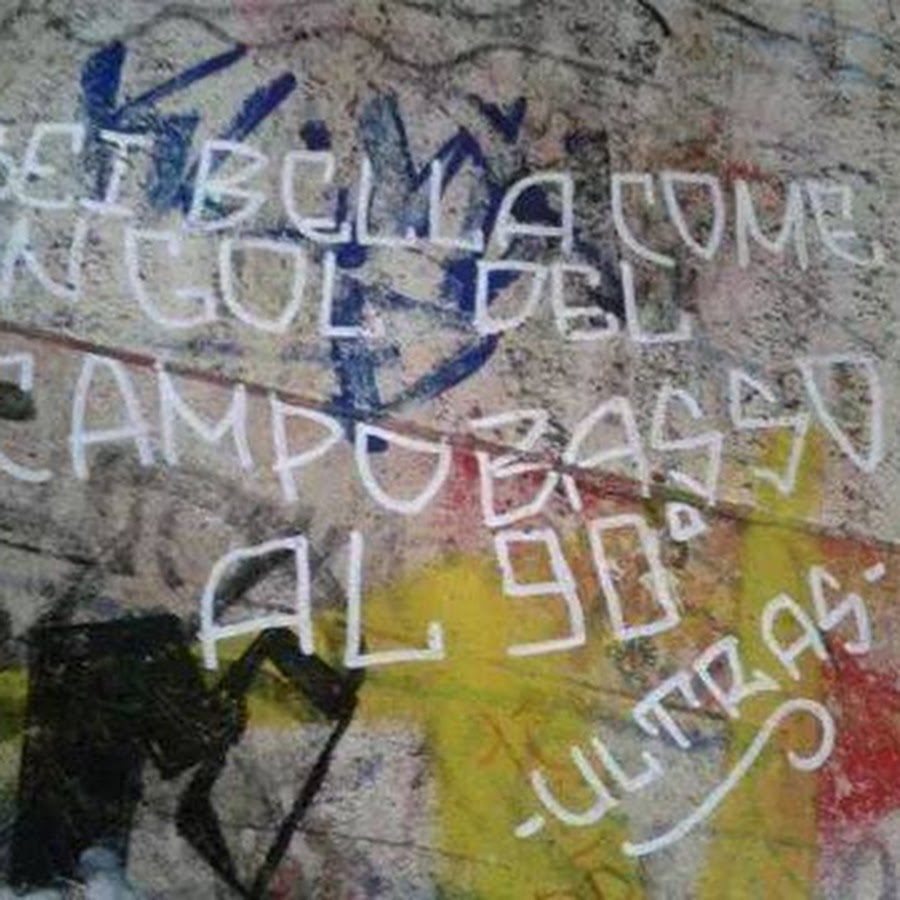 SEI BELLA COME
UN GOL DEL
CAMPOBASSO
AL 90°
-ULTRAS-